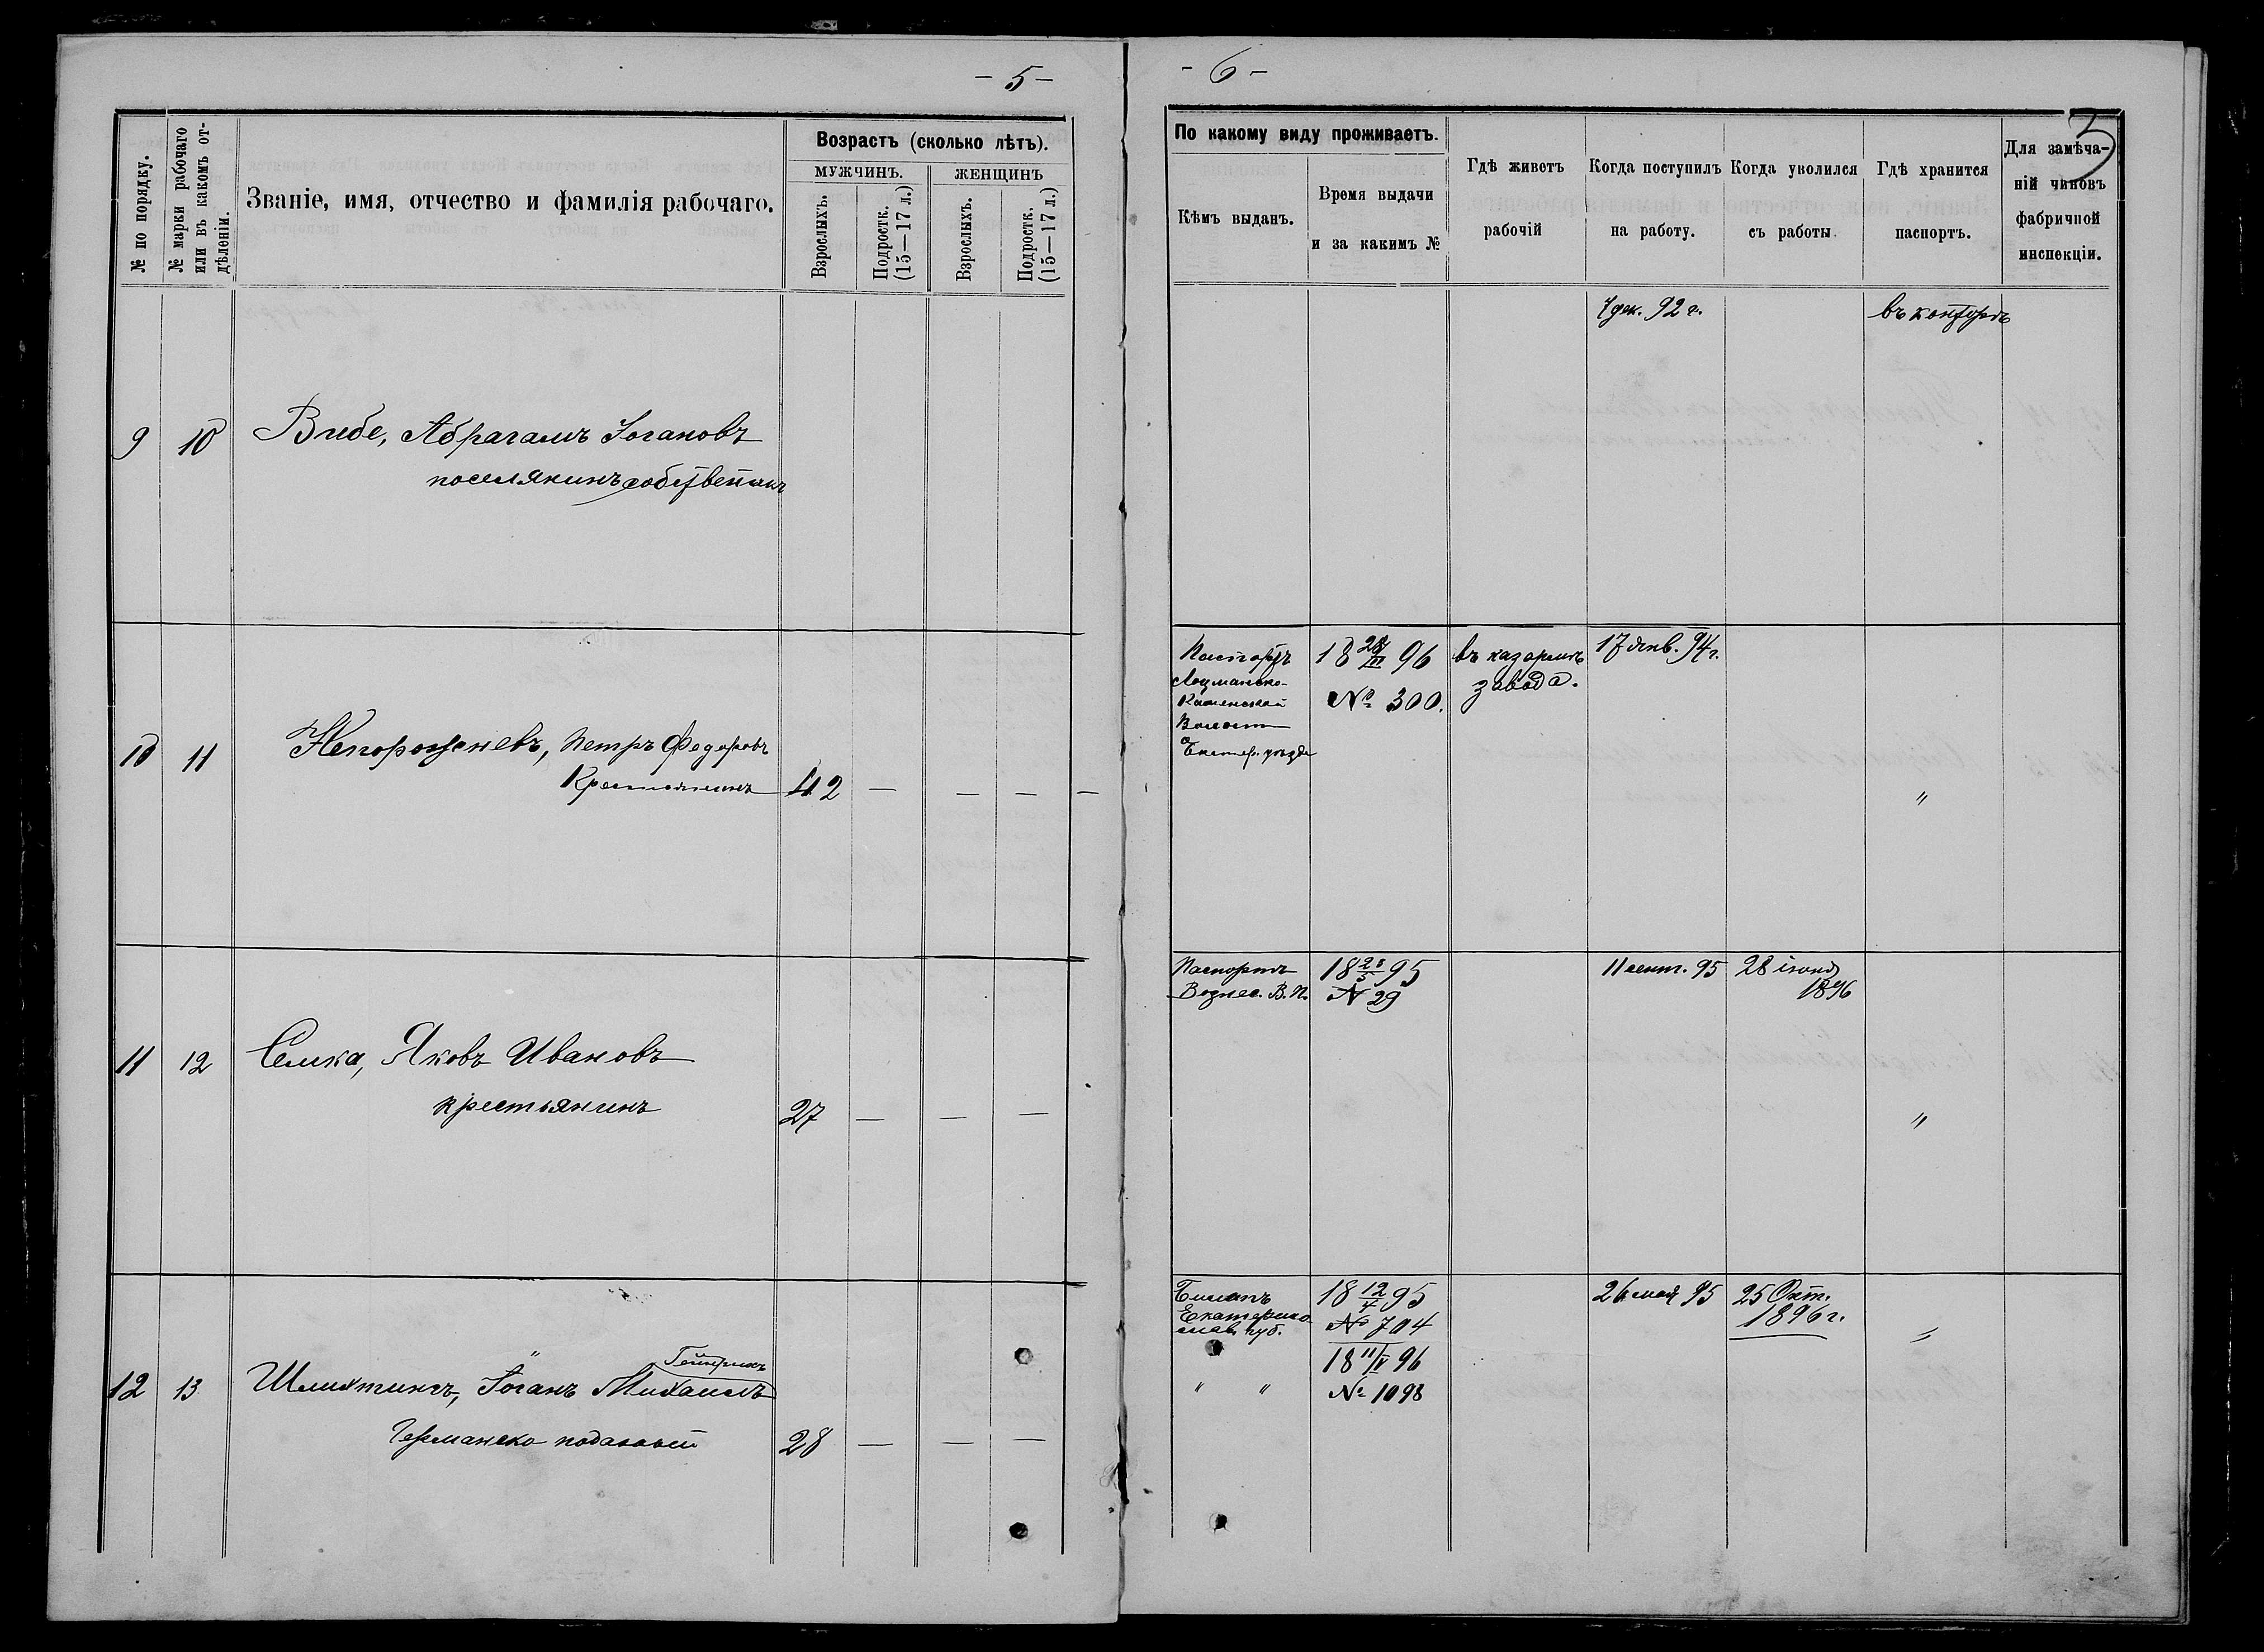 - 5 -
№ по порядку.
№ марки рабочаго
или въ какомъ от-
дѣленіи.
Званіе, имя, отчество и фамилія рабочаго.
Возрастъ (сколько лѣтъ).
МУЖЧИНЪ.
ЖЕНЩИНЪ
Взрослыхъ.
Подростк.
(15—17 л.)
Взрослыхъ.
Подростк.
(15—17 л.)
9 10 Вибе, Абрагамъ Іогановъ
поселянинъ собственникъ
10 11 Непорожневъ, Петръ Федоровъ
Крестьянинъ 42 — — — —
11 12 Семка, Яковъ Ивановъ
крестьянинъ 27 — — —
Гейнрихъ
12 13 Шлихтингъ, Іоганъ Михаилъ
Германско подданый 28 — — —
- 6 -
5
По какому виду проживаетъ.
Кѣмъ выданъ.
Время выдачи
и за какимъ №
Гдѣ живетъ
рабочій
Когда поступилъ
на работу.
Когда уволился
съ работы.
Гдѣ хранится
паспортъ.
Для замѣча-
ній чиновъ
фабричной
инспекціи.
7 дек. 92 г. въ конторѣ
Паспортъ 18 28/III 96 въ казармѣ 17 янв. 94 г.
Лоцманско- № 300. завода.
Каменской
Волости
Екатер. уѣзда
"
Паспортъ 18 28/5 95 11 сент. 95 28 іюня
Вознес. В. П. № 29 1896
"
Билетъ 18 12/4 95 26 мая 95 25 Окт.
Екатерино- № 704 1896 г. "
слав. губ.
18 11/V 96
" " № 1098